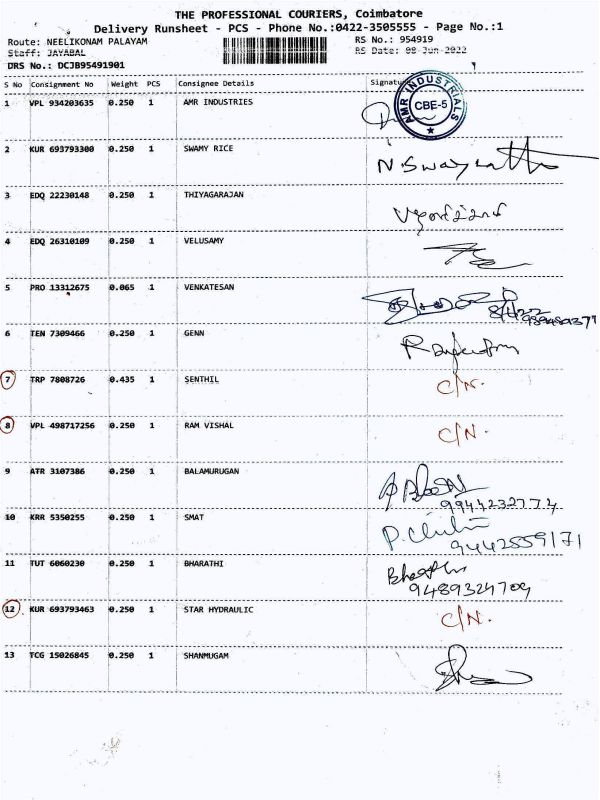 THE PROFESSIONAL COURIERS, Coimbatore
Delivery Runsheet - PCS - Phone No.:0422-3505555 - Page No.:1
Route: NEELIKONAM PALAYAM RS No.: 954919
Staff: JAYABAL RS Date: 08-Jun-2022
DRS No.: DCJB95491901
S No Consignment No Weight PCS Consignee Details Signature
1 VPL 934203635 0.250 1 AMR INDUSTRIES
AMR INDUSTRIALS CBE-5
2 KUR 693793300 0.250 1 SWAMY RICE
3 EDQ 22230148 0.250 1 THIYAGARAJAN
4 EDQ 26310109 0.250 1 VELUSAMY
5 PRO 13312675 0.065 1 VENKATESAN
6 TEN 7309466 0.250 1 GENN
7 TRP 7808726 0.435 1 SENTHIL C/N.
8 VPL 498717256 0.250 1 RAM VISHAL C/N.
9 ATR 3107386 0.250 1 BALAMURUGAN
9944232774
10 KRR 5350255 0.250 1 SMAT
9442559171
11 TUT 6060230 0.250 1 BHARATHI
9489324709
12 KUR 693793463 0.250 1 STAR HYDRAULIC C/N.
13 TCG 15026845 0.250 1 SHANMUGAM